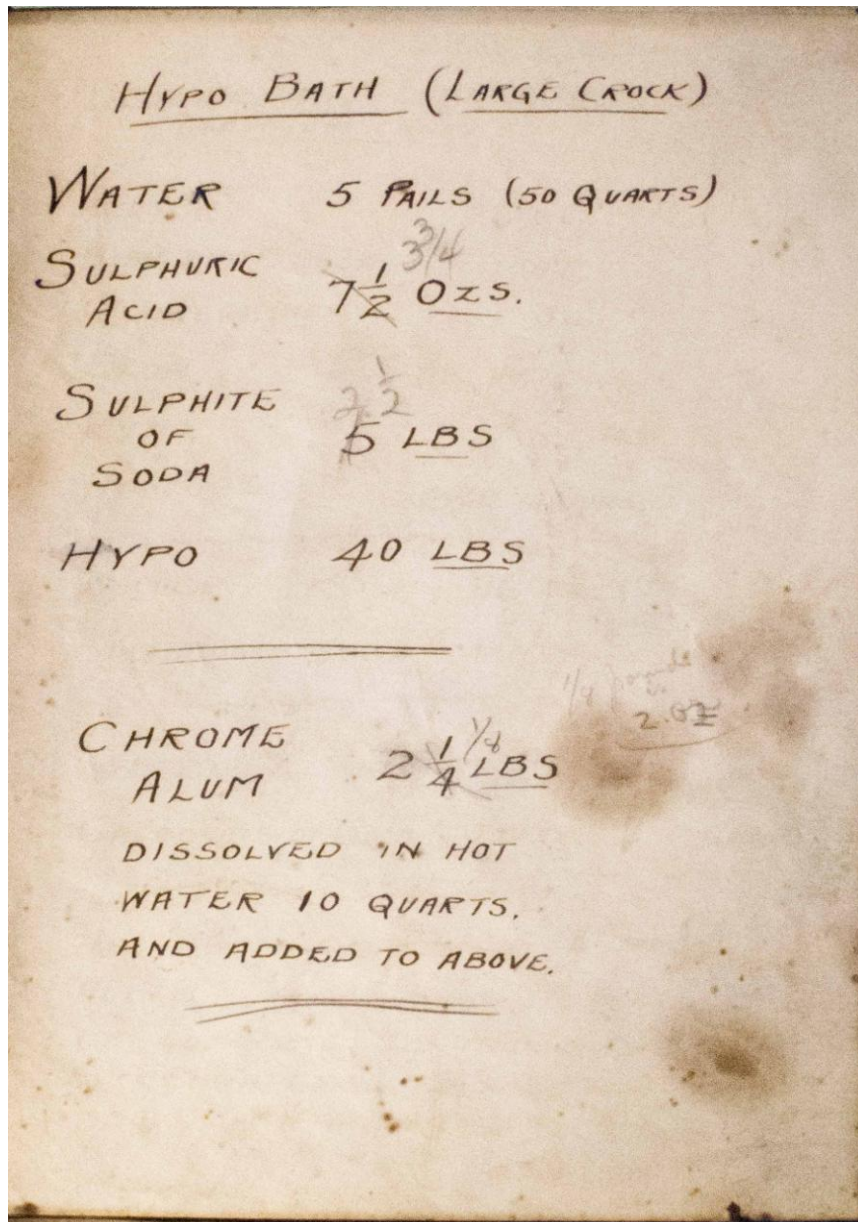 HYPO BATH (LARGE CROCK)
WATER 5 PAILS (50 QUARTS)
3 3/4
SULPHURIC ACID 7 1/2 OZS.
2 1/2
SULPHITE OF SODA 5 LBS
HYPO 40 LBS
1/8 pound
2 oz
CHROME ALUM 2 1/4 1/8 LBS
DISSOLVED IN HOT
WATER 10 QUARTS.
AND ADDED TO ABOVE.